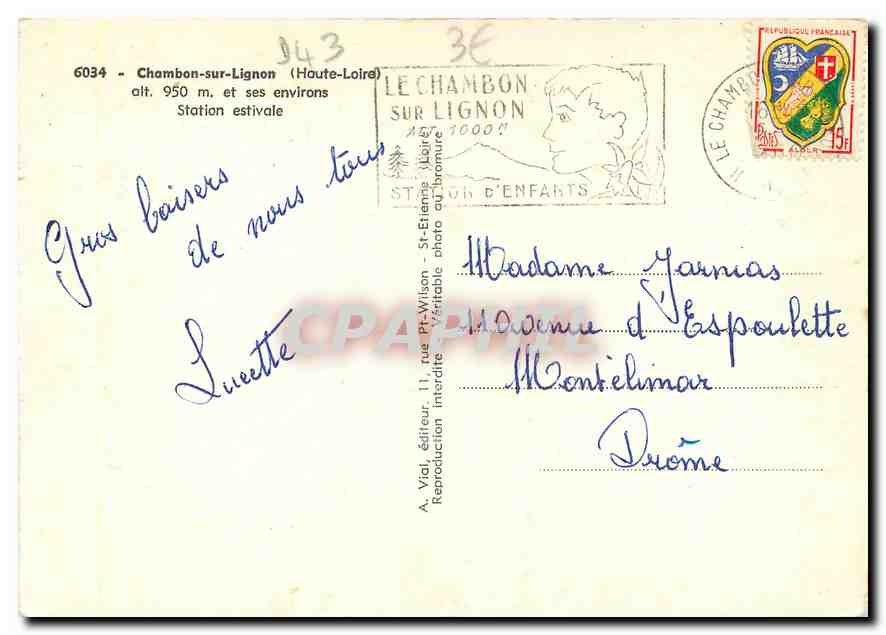 943
3€
6034 - Chambon-sur-Lignon (Haute-Loire)
alt. 950 m. et ses environs
Station estivale
LE CHAMBON
SUR LIGNON
ALT. 1000m
STATION D'ENFANTS
LE CHAMBON
REPUBLIQUE FRANÇAISE
POSTES
ALGER
15F
Gros baisers
de nous tous
Lucette
A. Vial, éditeur. 11, rue Pt-Wilson - St-Etienne (Loire)
Reproduction interdite - Véritable photo au bromure
Madame Jarnias
11 Avenue d'Espoulette
Montélimar
Drôme
CPAPHIL